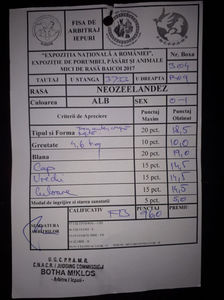 FISA DE
ARBITRAJ
IEPURI
"EXPOZITIA NATIONALĂ A ROMÂNIEI",
EXPOZITIE DE PORUMBEI, PĂSĂRI ȘI ANIMALE
MICI DE RASĂ BAICOI 2017
Nr. Boxa
TATUAJ U STANGA U DREAPTA
RASA NEOZEELANDEZ
Culoarea ALB SEX 0-1
Criterii de Apreciere Punctaj Maxim Punctaj Obtinut
Tipul si Forma 20 pct. 18,5
Greutate 4,6 kg 10 pct. 10,0
Blana 20 pct. 19,0
Cap 15 pct. 14,5
15 pct. 14,5
Culoare 15 pct. 14,5
Modul de ingrijire si starea sanatatii 5 pct. 5,0
CALIFICATIV FB PUNCTAJ 960
SEMNATURA
ARBITRILOR
U.G.C.P.P.A.M.R.
C.N.E.A.C.R. / JUDGING COMMISSION
BOTHA MIKLOS
- Arbitru / Iepuri -